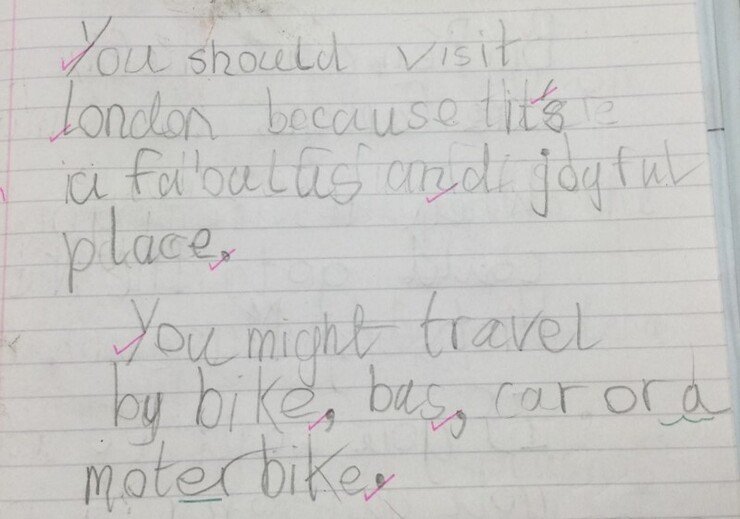 You should visit
London because it's
a fabulus and joyful
place.
You might travel
by bike, bus, car or a
moterbike.